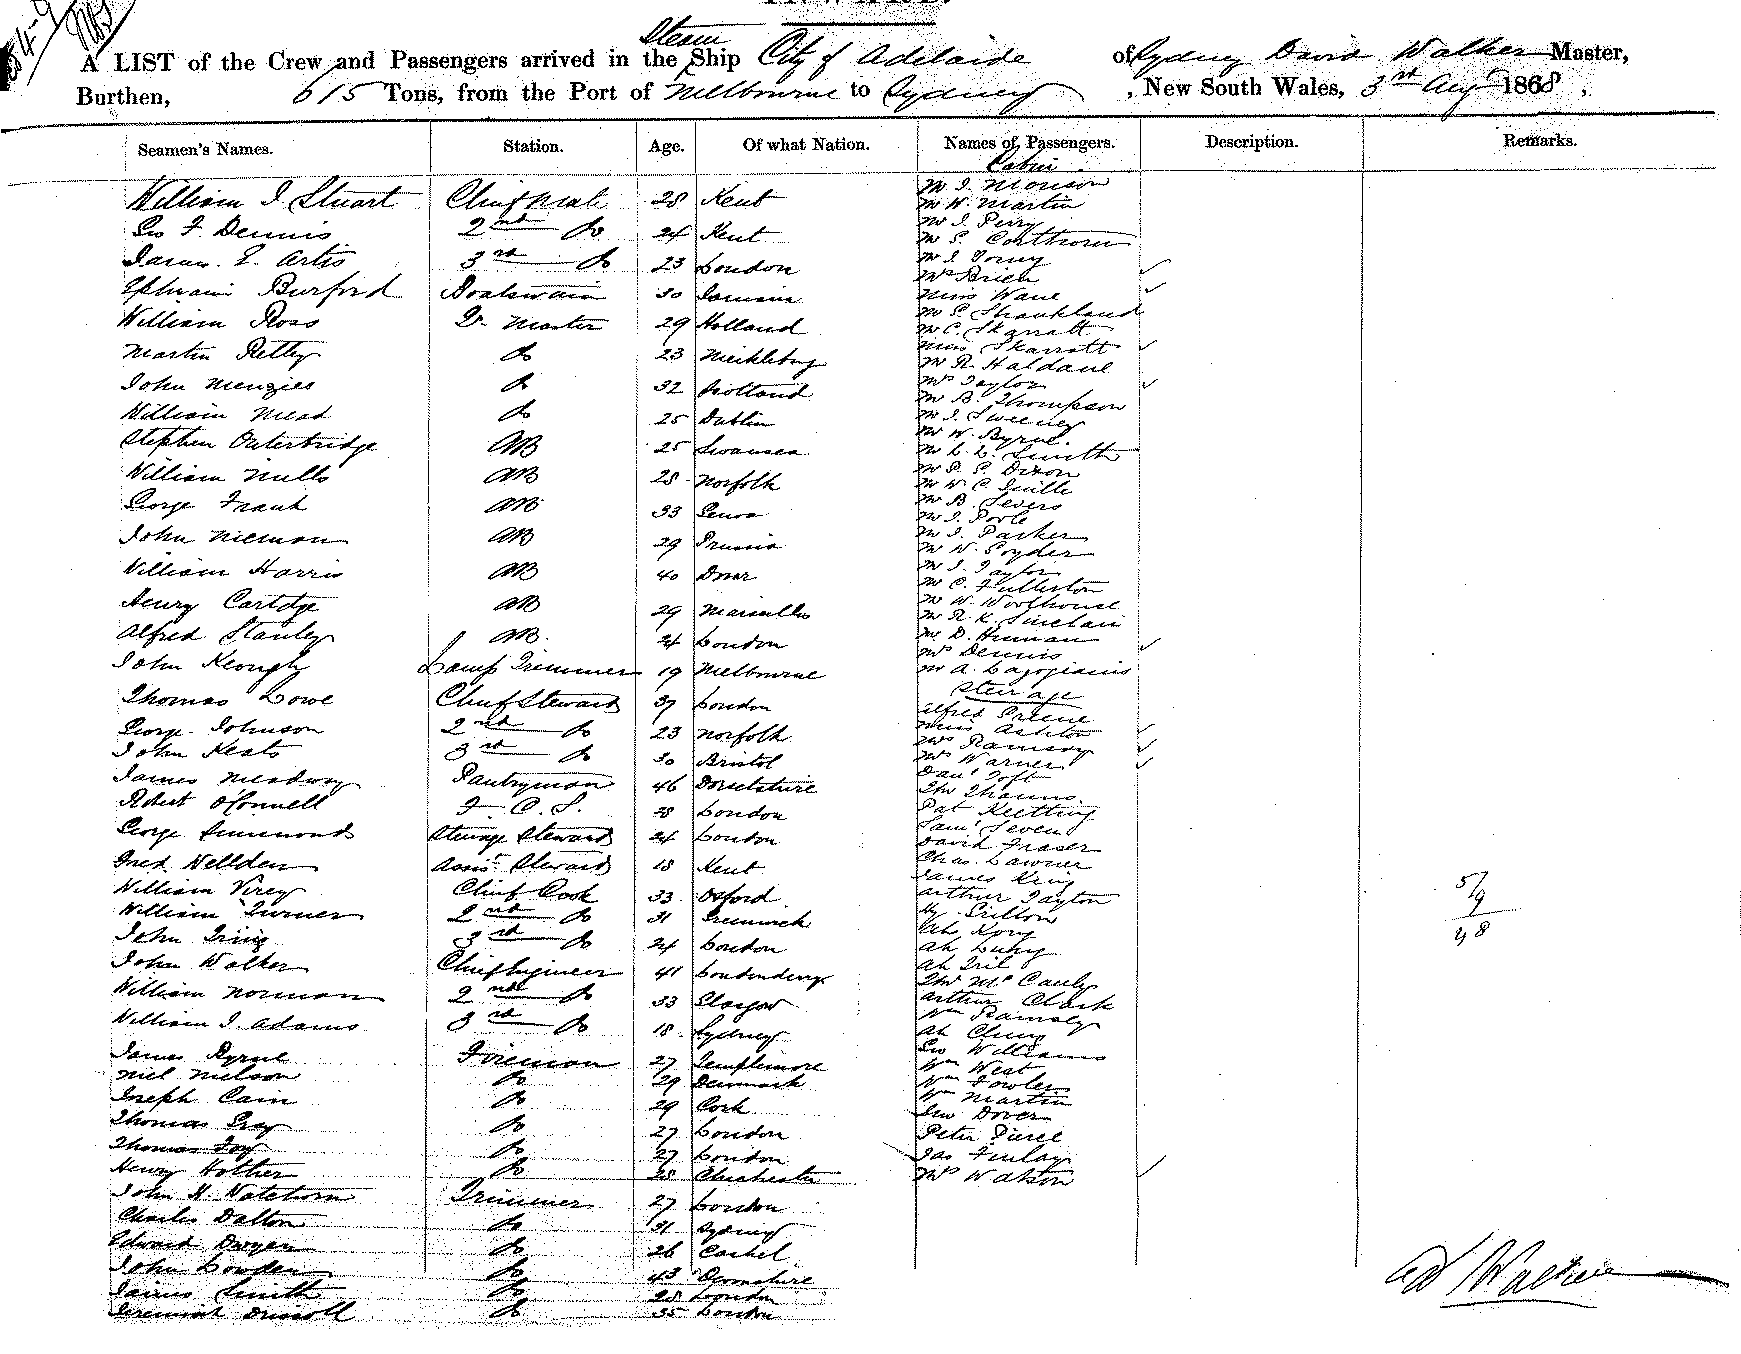 A LIST of the Crew and Passengers arrived in the Steam Ship City of Adelaide of Sydney David Walker Master,
Burthen, 615 Tons, from the Port of Melbourne to Sydney, New South Wales, 3rd Aug 1868,
Seamen's Names. Station. Age. Of what Nation. Names of Passengers. Description. Remarks.
William J Stuart Chief Mate 28 Kent
Geo F. Dennis 2nd Do 24 Kent
James E. Artis 3rd Do 23 London
Ephraim Burford Boatswain 30 Jamaica
William Ross Qr. Master 29 Holland
Martin Do 23
John Menzies Do 32 Scotland
William Mead Do 25 Dublin
Stephen Outerbridge AB 25 Swansea
William Mills AB 28 Norfolk
George Frank AB 33 Genoa
John Nieman AB 29 Prussia
William Harris AB 40 Dover
Henry AB 29 Marseilles
Alfred Stanley AB. 24 London
John Keough Lamp Trimmer 19 Melbourne
Thomas Lowe Chief Steward 37 London
George Johnson 2nd Do 23 Norfolk
John Keats 3rd Do 30 Bristol
James Meadway Pantryman 46 Dorsetshire
Robert O'Connell F. C. S. 28 London
George Simmonds Steerage Steward 24 London
Fred Wellden Assist Steward 18 Kent
William Virey Chief Cook 33 Oxford
William Turner 2nd Do 31 Greenwich
John 3rd Do 24 London
John Walker Chief Engineer 41 Londonderry
William Norman 2nd Do 33 Glasgow
William J. Adams 3rd Do 18 Sydney
James Byrne Fireman 27 Templemore
Niel Nielson Do 29 Denmark
Joseph Cain Do 29 Cork
Thomas Gray Do 27 London
Thomas Foy Do 27 London
Henry Hother Do 28 Chichester
John H. Watchorn Trimmer 27 London
Charles Dalton Do 31 Sydney
Edward Dwyer Do 26 Cashel
John Lowden Do 43
James Smith Do 28 London
Jeremiah Driscoll Do 35 London
Cabin
Mr J. Monson
Mr W. Martin
Mr J. Perry
Mr G.
Mr J.
Mrs Brien
Miss Wane
Mr G. Shankland
Mr C. Skarratt
Miss Skarratt
Mr R. Haldane
Mrs Taylor
Mr B. Thompson
Mr J. Sweeney
Mr W. Byrne.
Mr L. L. Smith
Mr Dixon
Mr W C.
Mr B. Severs
Mr J. Poole
Mr J. Parker
Mr W. Goyder
Mr J. Taylor
Mr C. Fullerton
Mr W. Woolhouse
Mr R. K. Sinclair
Mr D.
Mrs Dennis
Mr A.
Steerage
Alfred Greene
Miss Ashton
Mrs Ramsay
Mrs Warner
Danl Toft
Pat Keetting
Saml Seven
David Fraser
Chas. Lawner
James King
Arthur Tayton
Ah Kong
Ah
Ah
McCauly
Arthur Clark
Wm Ramsay
Ah Ching
Geo Williams
Wm West
Wm Fowler
Wm Martin
Dover
Peter
Jas Finlay
Mrs Watson
5/9
48
D Walker